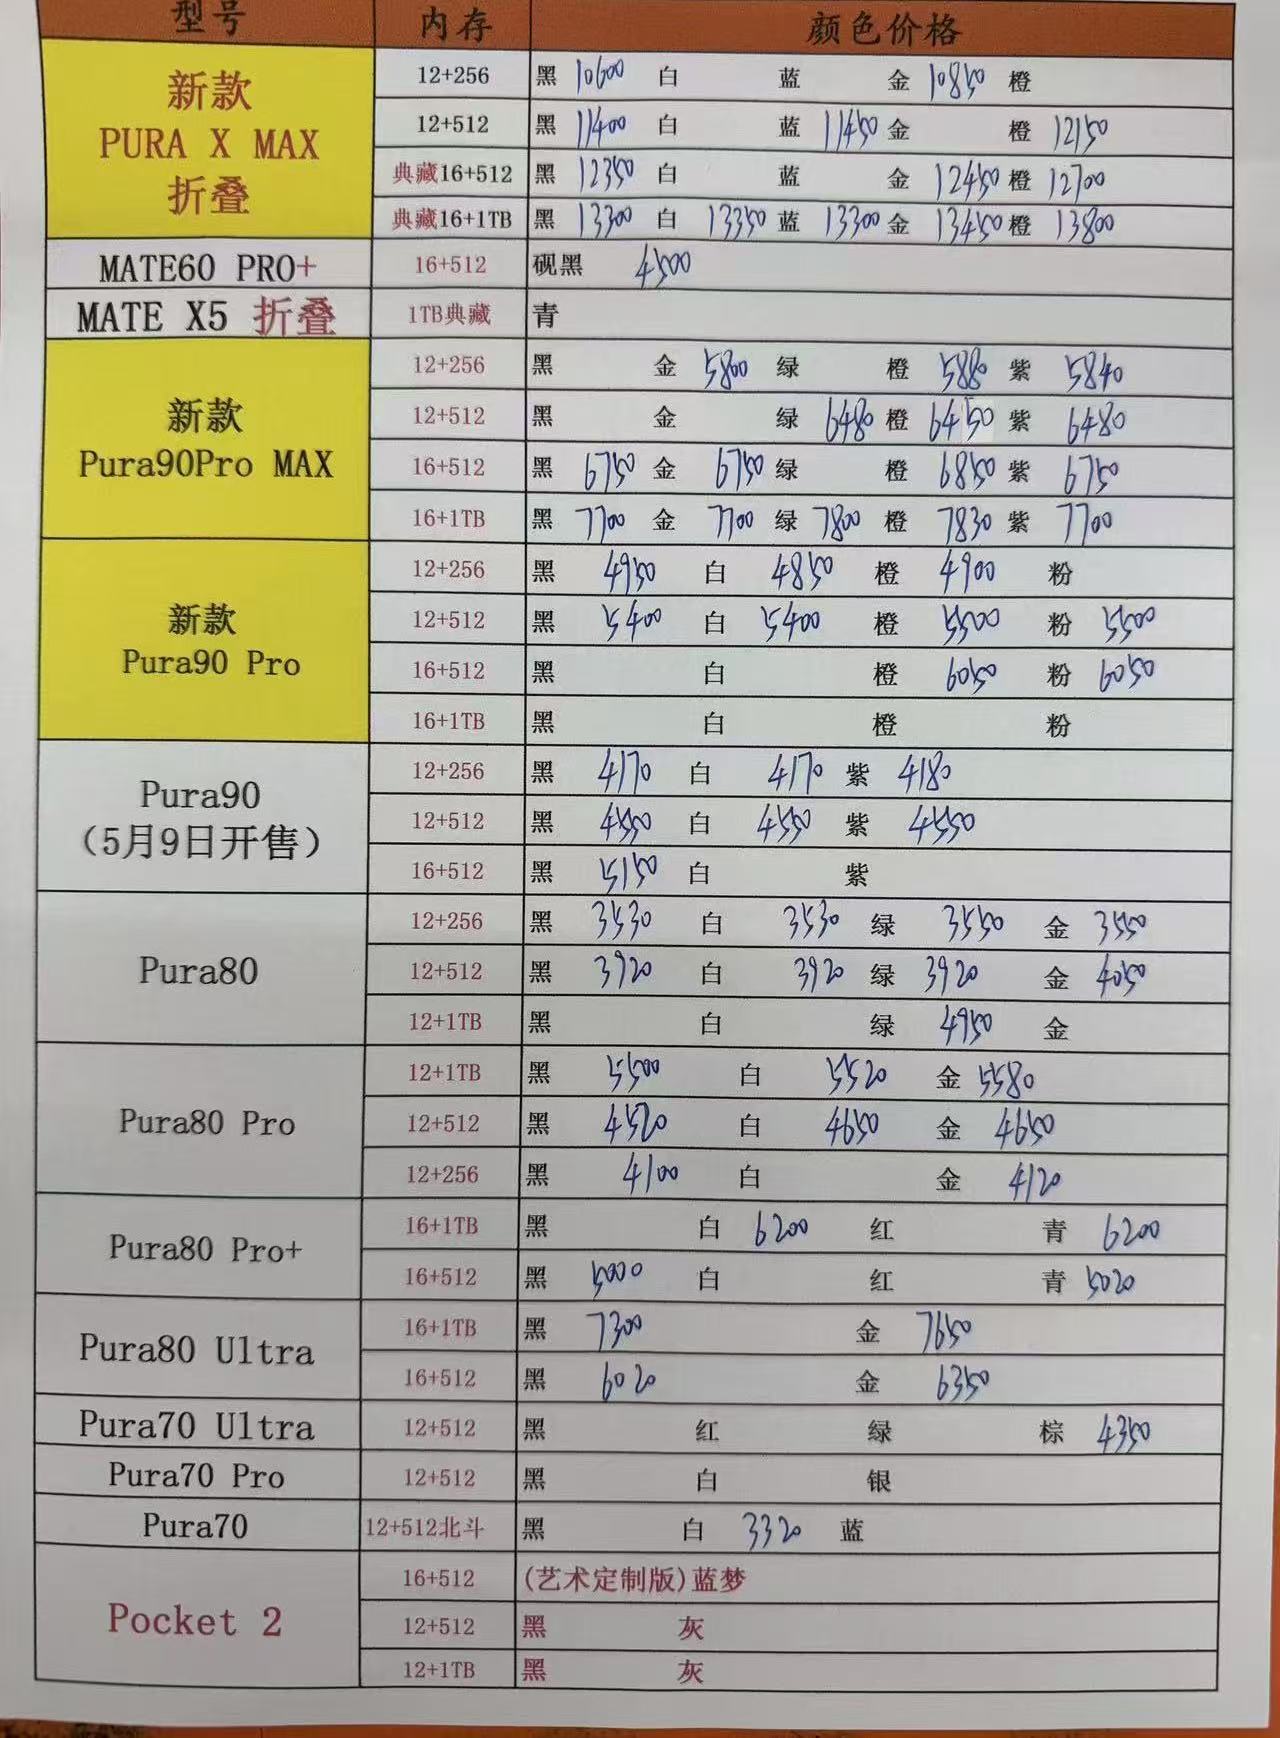 型号 内存 颜色价格
新款 PURA X MAX 折叠 12+256 黑 10600 白 蓝 金 10850 橙
12+512 黑 11400 白 蓝 11450 金 橙 12150
典藏16+512 黑 12350 白 蓝 金 12450 橙 12700
典藏16+1TB 黑 13300 白 13350 蓝 13300 金 13450 橙 13800
MATE60 PRO+ 16+512 砚黑 4500
MATE X5 折叠 1TB典藏 青
新款 Pura90Pro MAX 12+256 黑 金 5800 绿 橙 5880 紫 5840
12+512 黑 金 绿 6480 橙 6450 紫 6480
16+512 黑 6750 金 6750 绿 橙 6850 紫 6750
16+1TB 黑 7700 金 7700 绿 7800 橙 7830 紫 7700
新款 Pura90 Pro 12+256 黑 4950 白 4850 橙 4900 粉
12+512 黑 5400 白 5400 橙 5500 粉 5500
16+512 黑 白 橙 6050 粉 6050
16+1TB 黑 白 橙 粉
Pura90 （5月9日开售） 12+256 黑 4170 白 4170 紫 4180
12+512 黑 4550 白 4550 紫 4550
16+512 黑 5150 白 紫
Pura80 12+256 黑 3530 白 3530 绿 3550 金 3550
12+512 黑 3920 白 3920 绿 3920 金 4050
12+1TB 黑 白 绿 4950 金
Pura80 Pro 12+1TB 黑 5500 白 5520 金 5580
12+512 黑 4520 白 4650 金 4650
12+256 黑 4100 白 金 4120
Pura80 Pro+ 16+1TB 黑 白 6200 红 青 6200
16+512 黑 5000 白 红 青 5020
Pura80 Ultra 16+1TB 黑 7300 金 7650
16+512 黑 6020 金 6350
Pura70 Ultra 12+512 黑 红 绿 棕 4350
Pura70 Pro 12+512 黑 白 银
Pura70 12+512北斗 黑 白 3320 蓝
Pocket 2 16+512 (艺术定制版)蓝梦
12+512 黑 灰
12+1TB 黑 灰